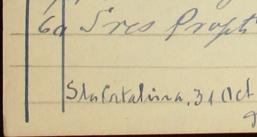 6a Sres Propt
Sta Catalina, 31 Oct